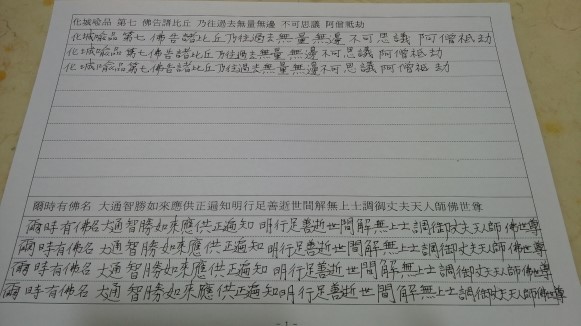 化城喻品 第七 佛告諸比丘 乃往過去無量無邊 不可思議 阿僧祇劫
化城喻品第七 佛告諸比丘乃往過去無量無邊不可思議 阿僧祇劫
化城喻品第七佛告諸比丘乃往過去無量無邊不可思議 阿僧祇劫
化城喻品第七佛告諸比丘乃往過去無量無邊不可思議 阿僧祇劫
爾時有佛名 大通智勝如來應供正遍知明行足善逝世間解無上士調御丈夫天人師佛世尊
爾時有佛名大通智勝如來應供正遍知 明行足善逝世間解無上士調御丈夫天人師 佛世尊
爾時有佛名 大通智勝如來應供正遍知 明行足善逝世間解無上士調御丈夫天人師佛世尊
爾時有佛名 大通智勝如來應供正遍知 明行足善逝世間解無上士調御丈夫天人師佛世尊
爾時有佛名 大通智勝如來應供正遍知明行足善逝世間解無上士調御丈夫天人師佛世尊
- 1 -